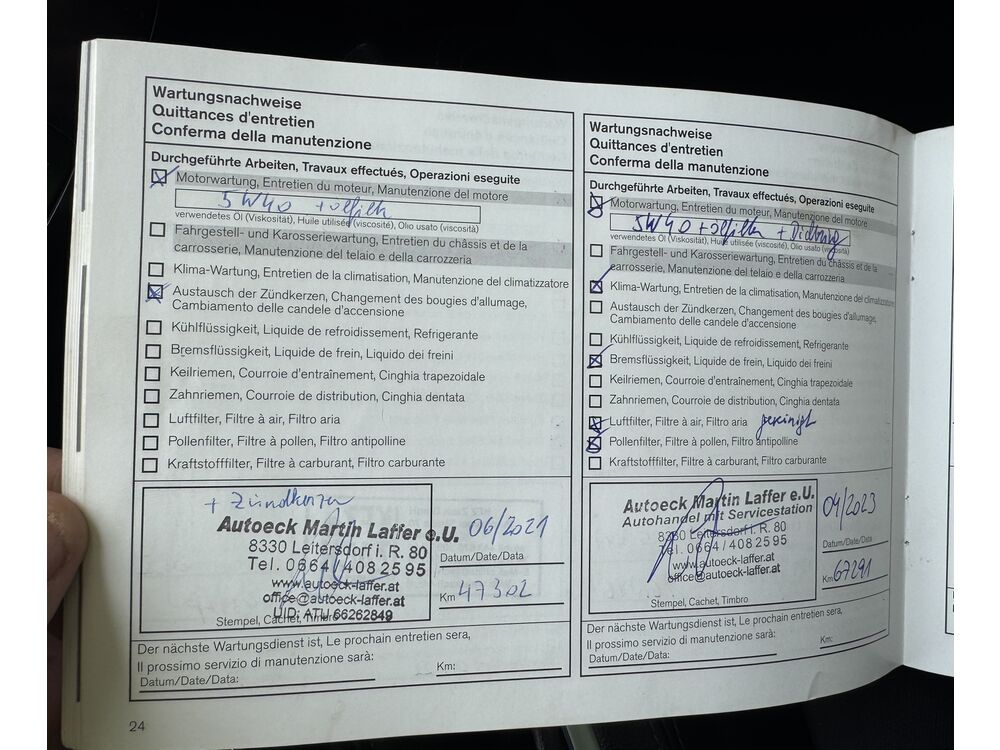 Wartungsnachweise
Quittances d'entretien
Conferma della manutenzione
Durchgeführte Arbeiten, Travaux effectués, Operazioni eseguite
Motorwartung, Entretien du moteur, Manutenzione del motore
5W40 +ölfilter
verwendetes Öl (Viskosität), Huile utilisée (viscosité), Olio usato (viscosità)
Fahrgestell- und Karosseriewartung, Entretien du châssis et de la
carrosserie, Manutenzione del telaio e della carrozzeria
Klima-Wartung, Entretien de la climatisation, Manutenzione del climatizzatore
Austausch der Zündkerzen, Changement des bougies d'allumage,
Cambiamento delle candele d'accensione
Kühlflüssigkeit, Liquide de refroidissement, Refrigerante
Bremsflüssigkeit, Liquide de frein, Liquido dei freini
Keilriemen, Courroie d'entraînement, Cinghia trapezoidale
Zahnriemen, Courroie de distribution, Cinghia dentata
Luftfilter, Filtre à air, Filtro aria
Pollenfilter, Filtre à pollen, Filtro antipolline
Kraftstofffilter, Filtre à carburant, Filtro carburante
+ Zündkerzen
Autoeck Martin Laffer e.U.
8330 Leitersdorf i. R. 80
Tel. 0664/408 25 95
www.autoeck-laffer.at
office@autoeck-laffer.at
UID: ATU 66262849
Stempel, Cachet, Timbro
06/2021
Datum/Date/Data
Km 47302
Der nächste Wartungsdienst ist, Le prochain entretien sera,
Il prossimo servizio di manutenzione sarà:
Datum/Date/Data:
Km:
24
Wartungsnachweise
Quittances d'entretien
Conferma della manutenzione
Durchgeführte Arbeiten, Travaux effectués, Operazioni eseguite
Motorwartung, Entretien du moteur, Manutenzione del motore
5W40 +ölfilter + Dichtring
verwendetes Öl (Viskosität), Huile utilisée (viscosité), Olio usato (viscosità)
Fahrgestell- und Karosseriewartung, Entretien du châssis et de la
carrosserie, Manutenzione del telaio e della carrozzeria
Klima-Wartung, Entretien de la climatisation, Manutenzione del climatizzatore
Austausch der Zündkerzen, Changement des bougies d'allumage,
Cambiamento delle candele d'accensione
Kühlflüssigkeit, Liquide de refroidissement, Refrigerante
Bremsflüssigkeit, Liquide de frein, Liquido dei freini
Keilriemen, Courroie d'entraînement, Cinghia trapezoidale
Zahnriemen, Courroie de distribution, Cinghia dentata
Luftfilter, Filtre à air, Filtro aria gereinigt
Pollenfilter, Filtre à pollen, Filtro antipolline
Kraftstofffilter, Filtre à carburant, Filtro carburante
Autoeck Martin Laffer e.U.
Autohandel mit Servicestation
8330 Leitersdorf i. R. 80
Tel. 0664/408 25 95
www.autoeck-laffer.at
office@autoeck-laffer.at
Stempel, Cachet, Timbro
04/2023
Datum/Date/Data
Km 67291
Der nächste Wartungsdienst ist, Le prochain entretien sera,
Il prossimo servizio di manutenzione sarà:
Datum/Date/Data:
Km: